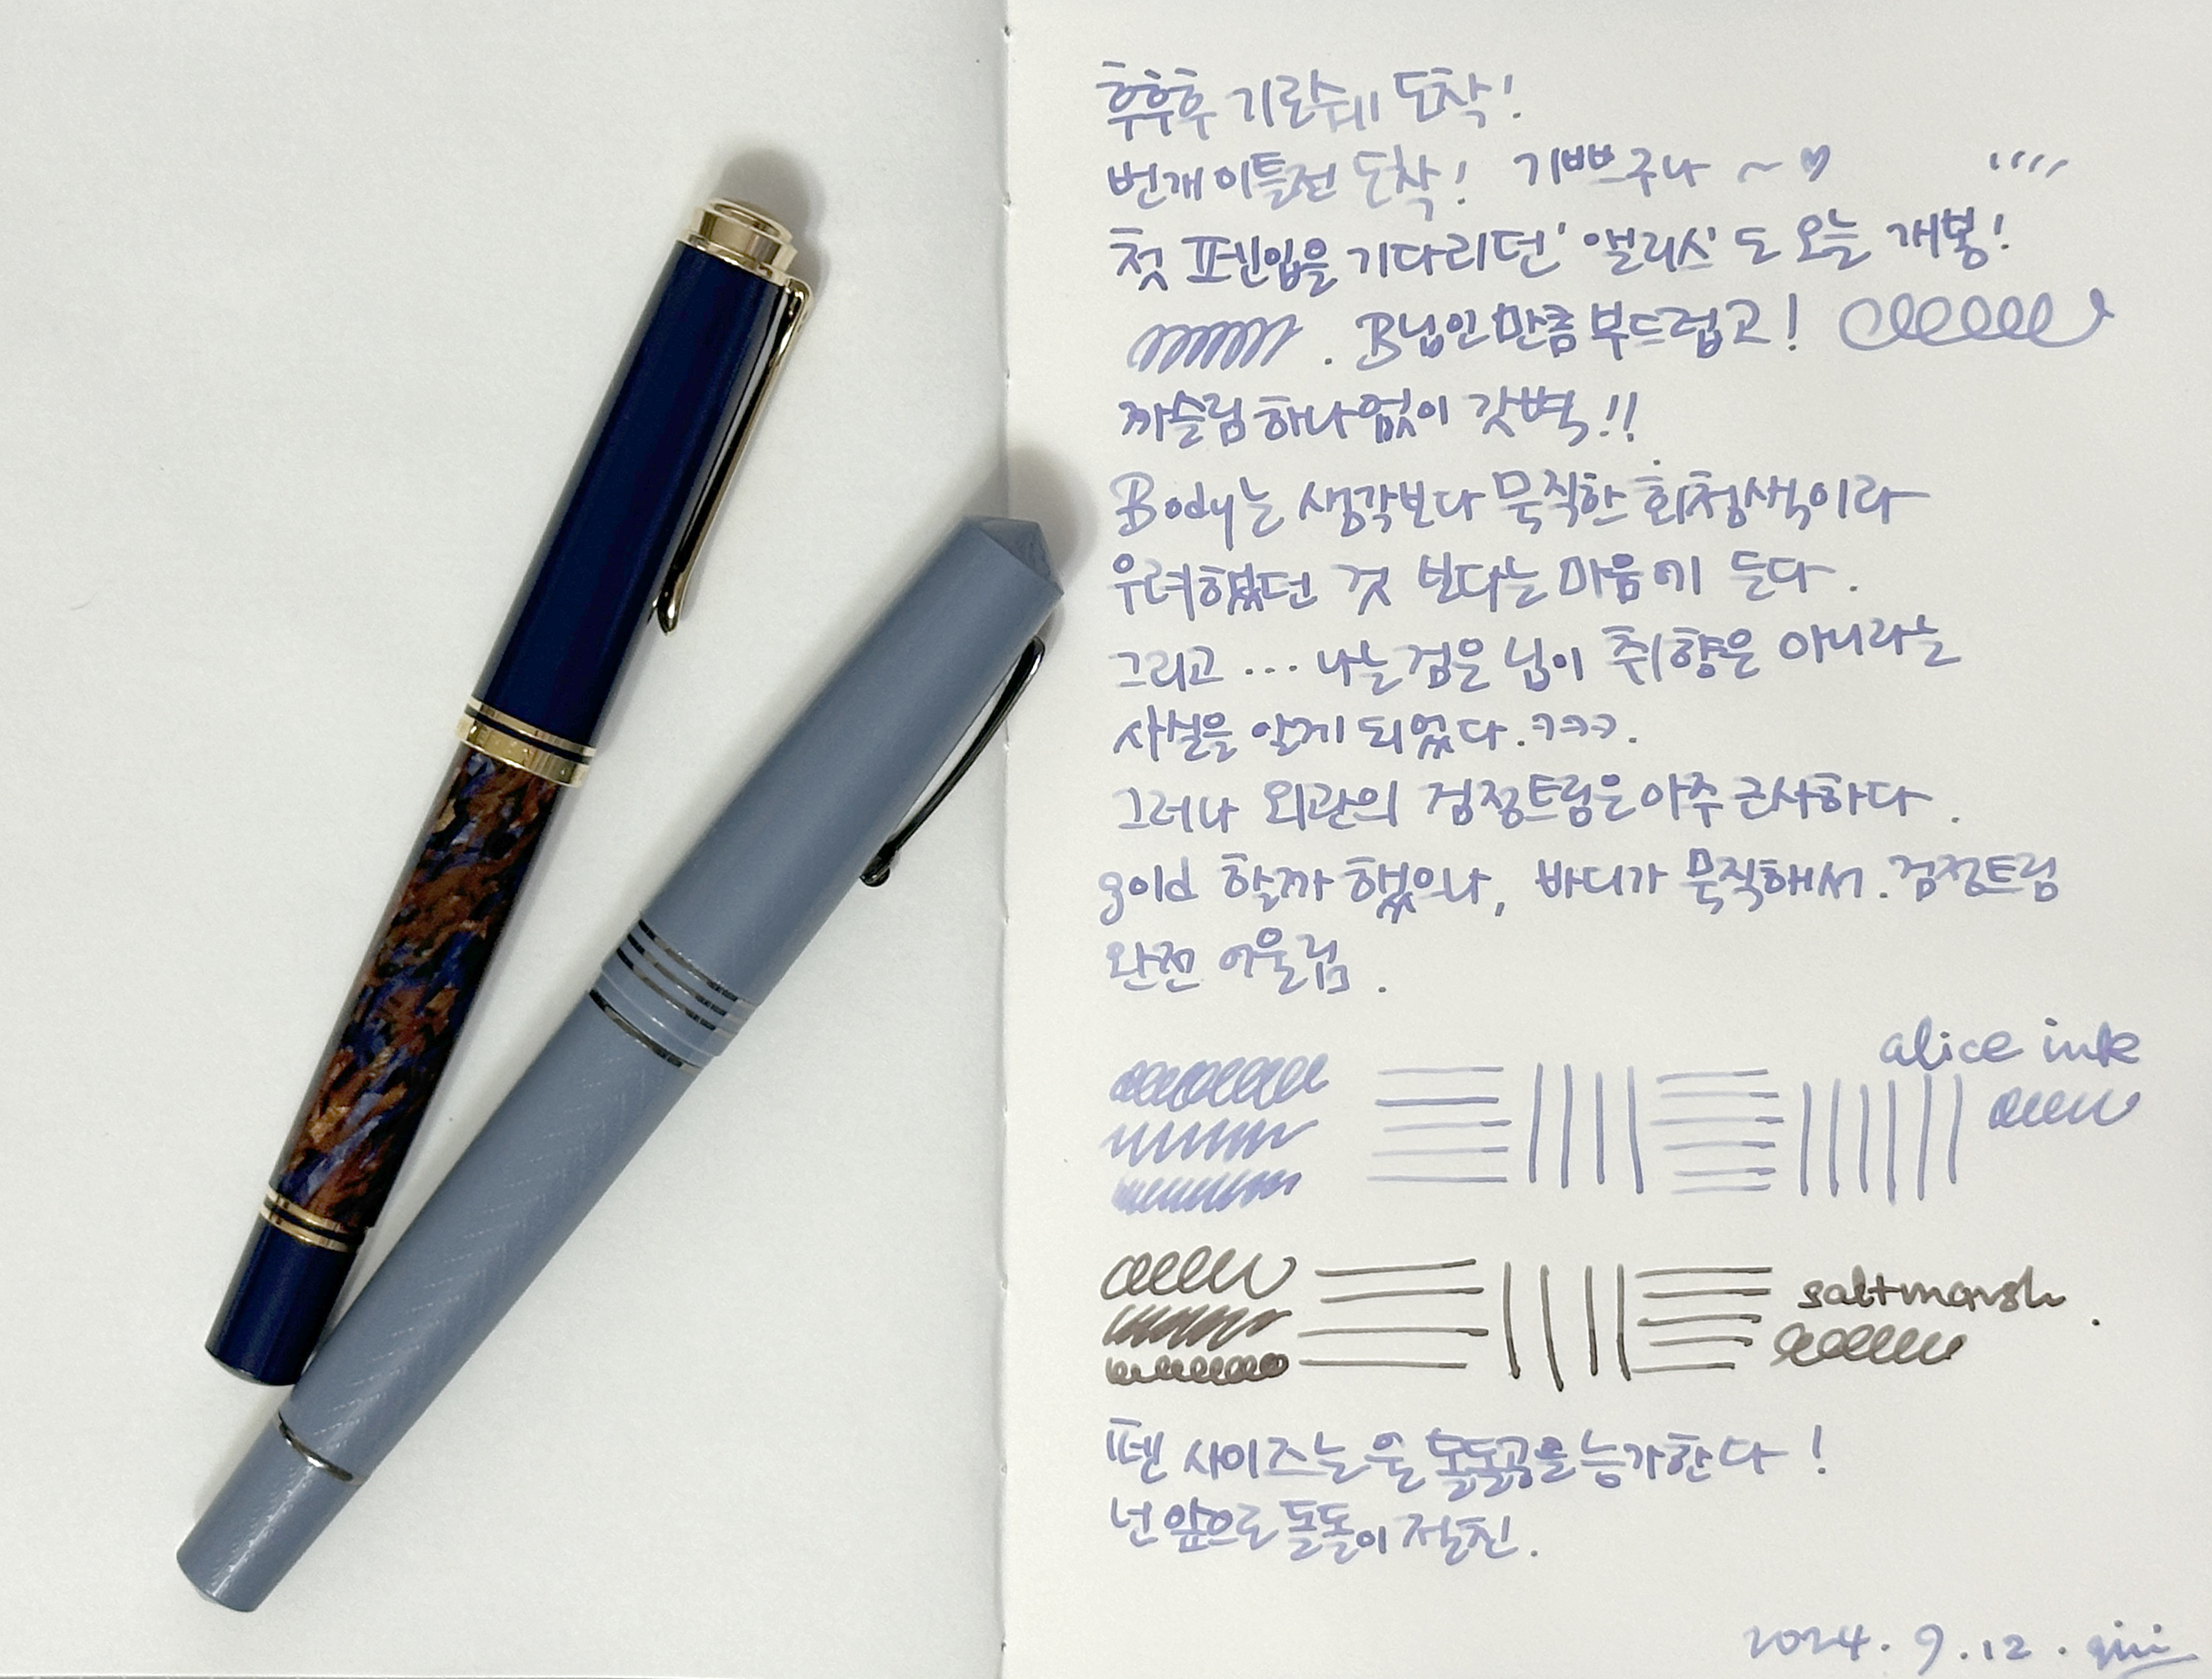 후후후 기란쉐 도착!
번개 이틀전 도착! 기쁘구나 ~ ♡
첫 펜입을 기다리던 '앨리스'도 오늘 개봉!
. B닙인만큼 부드럽고!
까슬림하나없이 갓벽!!
Body는 생각보다 묵직한 회청색이라
우려했던 것 보다는 마음에 든다.
그리고 ... 나는 검은 닙이 취향은 아니라는
사실을 알게 되었다. ㅋㅋㅋ.
그러나 외관의 검정트림은 아주 근사하다.
gold 할까 했으나, 바디가 묵직해서. 검정트림
완전 어울림.
alice ink
saltmarsh.
펜 사이즈는 울 돌돌공을 능가한다!
넌 앞으로 돌돌이 절친.
2024. 9. 12.